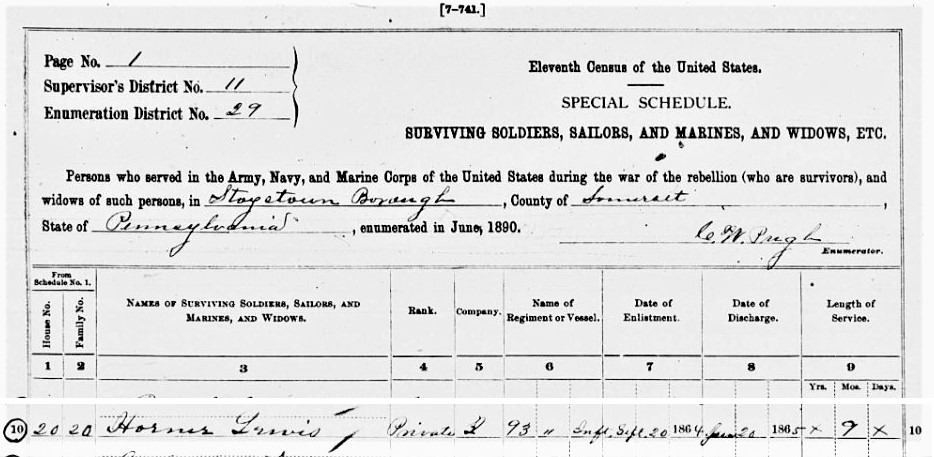 [7-741.]
Page No. 1
Supervisor's District No. 11
Enumeration District No. 29
Eleventh Census of the United States.
SPECIAL SCHEDULE.
SURVIVING SOLDIERS, SAILORS, AND MARINES, AND WIDOWS, ETC.
Persons who served in the Army, Navy, and Marine Corps of the United States during the war of the rebellion (who are survivors), and
widows of such persons, in Stoyetown Borough, County of Somerset,
State of Pennsylvania, enumerated in June, 1890.
C. W. Pugh
Enumerator.
From Schedule No. 1.
House No.
Family No.
NAMES OF SURVIVING SOLDIERS, SAILORS, AND MARINES, AND WIDOWS.
Rank.
Company.
Name of Regiment or Vessel.
Date of Enlistment.
Date of Discharge.
Length of Service.
1 2 3 4 5 6 7 8 9
Yrs. Mos. Days.
10 20 20 Horner Lewis Private 93 " Inft. Sept 20 1864 June 20 1865 x 9 x 10